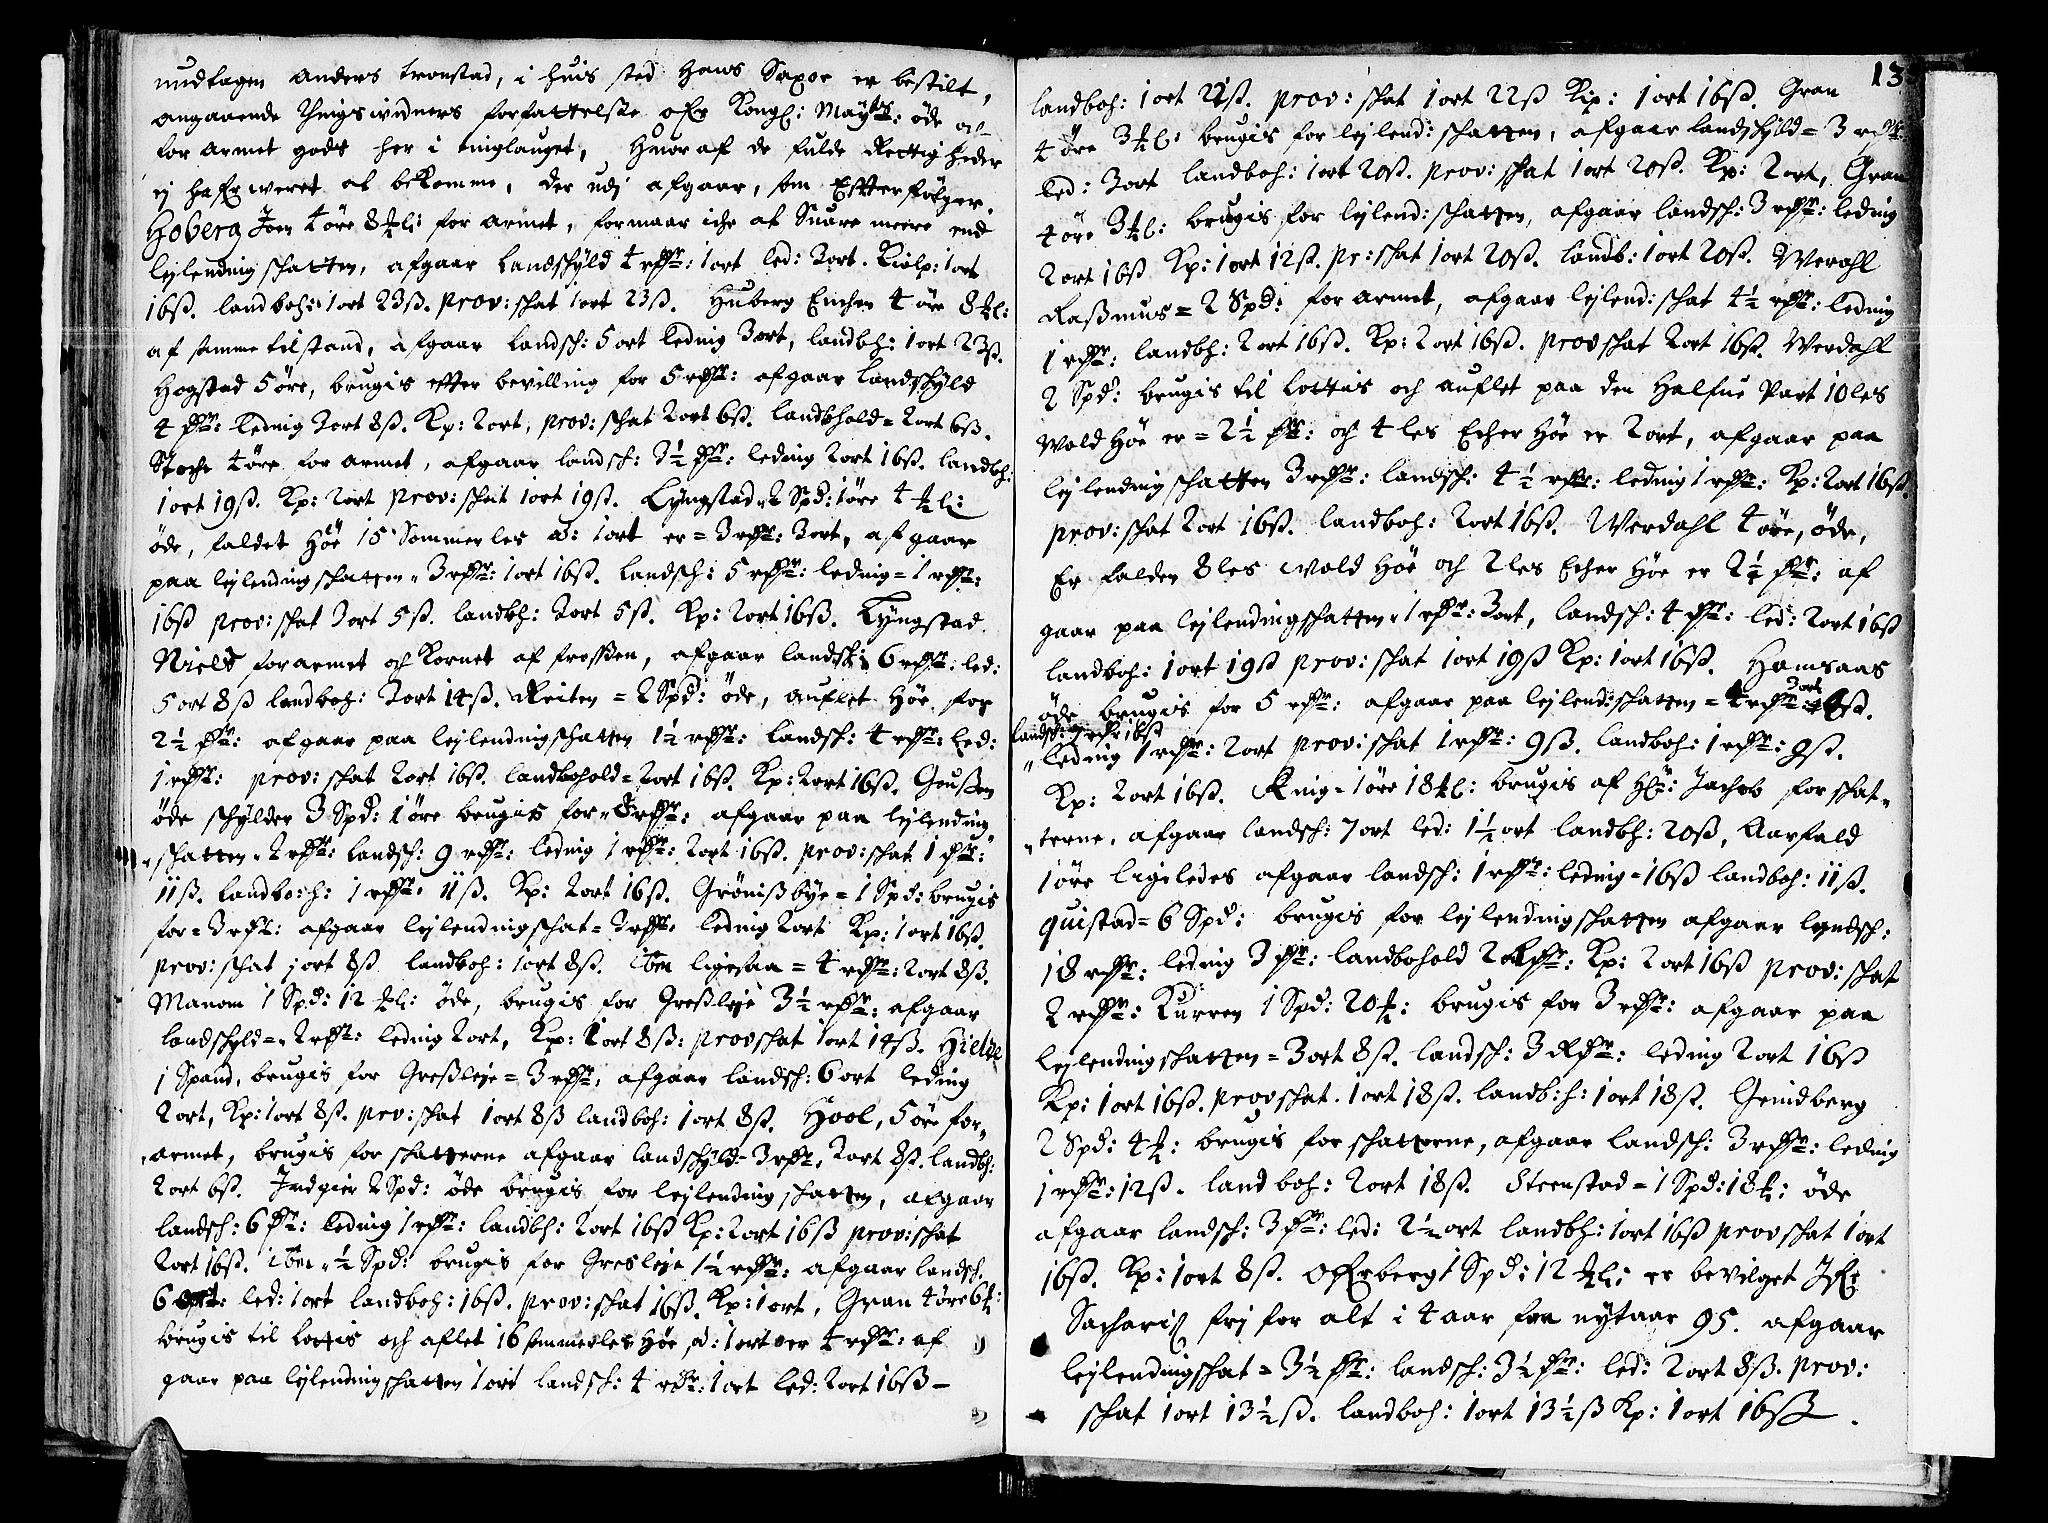 undtagen Anders tronstad, i huis sted Hans Saxoe er bestilt,
angaaende tingswidners forfattelse ofr Kongl: Maÿts: øde och
for armet gods her i tinglauget, Huor af de fulde Rettigheder
ej hafr weret at bekomme, der udj afgaar, som Efterfølger.
Hoberg Joen 4 øre 8 ℔l: for armet, formaar iche at Suare meere end
lejlending schatten, afgaar Landschÿld 4 rdr: 1 ort led: 3 ort. Kielp: 1 ort
16ß. landboh: 1 ort 23ß. prov: schat 1 ort 23ß. Huberg Enchen 4 øre 8 ℔l:
af samme tilstand, afgaar Landsch: 5 ort leding 3 ort, landbh: 1 ort 23ß.
Hogstad 5 øre, brugis effter bevilling for 5 rdr: afgaar Landschÿld
4 dr: leding 3 ort 8ß. Kp: 2 ort, prov: schat 2 ort 6ß. landbhold = 2 ort 6ß.
Stoche 4 øre for armet, afgaar landsch: 3½ dr: leding 2 ort 16ß. landbh:
1 ort 19ß. Kp: 2 ort prov: schat 1 ort 19ß. Lÿngstad 2 Spd: 1 øre 4 ℔l:
øde, faldet Höe 15 Sommerles ad: 1 ort er = 3 rdr: 3 ort, afgaar
paa lejlending schatten 3 rdr: 1 ort 16ß. Landsch: 5 rdr: leding = 1 rdr:
16ß prov: schat 3 ort 5ß. landbh: 3 ort 5ß. Kp: 2 ort 16ß. Lÿngstad
Niels for armet och Kornet af frossen, afgaar landsch: 6 rdr: led:
5 ort 8ß landboh: 3 ort 14ß. Reiten = 2 Spd: øde, auflet Höe for
2½ dr: afgaar paa lejlending schatten 1½ rdr: Landsch: 4 rdr: led:
1 rdr: prov: schat 2 ort 16ß. landbohold = 2 ort 16ß. Kp: 2 ort 16ß. Goußen
øde schÿlder 3 Spd: 1 øre brugis for 8 rdr: afgaar paa lejlending
schatten 2 rdr: Landsch: 9 rdr: leding 1 rdr: 2 ort 16ß. prov: schat 1 dr:
11ß. landbo:h: 1 rdr: 11ß. Kp: 2 ort 16ß. Grönißbÿe = 1 Spd: brugis
for = 3 rdr: afgaar lejlending schat = 3 rdr: leding 2 ort Kp: 1 ort 16ß.
prov: schat 1 ort 8ß landboh: 1 ort 8ß. ibm ligesaa = 4 rdr: 2 ort 8ß.
Manom 1 Spd: 12 ℔l: øde, brugis for Greßleje 3½ rdr: afgaar
landschÿld = 2 rdr: leding 2 ort, Kp: 1 ort 8ß: prov schat 1 ort 14ß. Hielde
1 Spand, brugis for Greßleje = 3 rdr: afgaar landsch: 6 ort leding
2 ort, Kp: 1 ort 8ß. prv: schat 1 ort 8ß landboh: 1 ort 8ß. Hool, 5 øre for
armet, brugis for schatterne afgaar landschÿld 3 rdr: 2 ort 8ß. landbh:
2 ort 6ß. Indgier 2 Spd: øde brugis for lejlending schatten, afgaar
landsch: 6 dr: leding 1 rdr: landbh: 2 ort 16ß Kp: 2 ort 16ß prov: schat
2 ort 16ß. ibm ½ Spd: brugis for Gresleje 1½ rdr: afgaar landsch:
6 ort: led: 1 ort landboh: 16ß. prov: schat 16ß. Kp: 1 ort, Gran 4 øre 6 ℔:
brugis til Lottis och aflet 16 sommerles Höe, ad: 1 ort er 4 rdr: af
gaar paa lejlending schatten 1 ort landsch: 4 rdr: 1 ort led: 2 ort 16ß
13
landboh: 1 ort 22ß. prov: schat 1 ort 22ß Kip: 1 ort 16ß. Gran
4 øre 3 ℔l: brugis for lejlend: schatten, afgaar landschÿld = 3 rdr:
led: 3 ort landboh: 1 ort 20ß. prov: schat 1 ort 20ß. Kp: 2 ort, Gran
4 øre 3 ℔l: brugis for lejlend: schatten, afgaar landsch: 3 rdr: leding
2 ort 16ß Kp: 1 ort 12ß. pr: schat 1 ort 20ß. landb: 1 ort 20ß. Werahl
Raßmus = 2 Spd: for armet, afgaar lejlend: schat 4½ rdr: leding
1 rdr: landbh: 2 ort 16ß. Kp: 2 ort 16ß. prov schat 2 ort 16ß. Werdahl
2 Spd: brugis til Lottis och auflet paa den Halfue Part 10 les
Wold Höe er = 2½ dr: och 4 les Echer Höe er 2 ort, afgaar paa
lejlending schatten 3 rdr: landsch: 4½ rdr: leding 1 rdr: Kp: 2 ort 16ß.
prov: schat 2 ort 16ß. landboh: 2 ort 16ß. Werdahl 4 øre, øde,
Er falden 8 les wold Höe och 2 les Echer Höe er 2¼ dr: af
gaar paa lejlending schatten 1 rdr: 3 ort, landsch: 4 dr: led: 2 ort 16ß
landboh: 1 ort 19ß prov: schat 1 ort 19ß Kp: 1 ort 16ß. Hamsaas
øde brugis for 5 rdr: afgaar paa lejlend: schatten = 4 rdr 3 ort 8ß.
landsch: 9 rdr 16ß
leding 1 rdr: 2 ort prov: schat 1 rdr: 9ß. landboh: 1 rdr: 9ß.
Kp: 2 ort 16ß. Kuig 1 øre 18 ℔l: brugis af Hr: Jachob for schat
terne, afgaar landsch: 7 ort led: 1½ ort landbh: 20ß, Aarfald
1 øre ligeledes afgaar landsch: 1 rdr: leding = 16ß landboh: 11ß.
quistad = 6 Spd: brugis for lejlending schatten afgaar landsch:
18 rdr: leding 3 dr: landbohold 2 Rdr: Kp: 2 ort 16ß prov: schat
2 rdr: Kurren 1 Spd: 20 ℔: brugis for 3 rdr: afgaar paa
lejlending schatten = 3 ort 8ß. landsch: 3 Rdr: leding 2 ort 16ß
Kp: 1 ort 16ß. prov schat. 1 ort 18ß. landb:h: 1 ort 18ß. Grindberg
2 Spd: 4 ℔: brugis for schatterne, afgaar landsch: 3 rdr: leding
1 rdr: 12ß. landboh: 2 ort 18ß. Steenstad = 1 Spd: 18 ℔: øde
afgaar landsch: 3 dr: led: 2½ ort landbh: 1 ort 16ß prov schat 1 ort
16ß. Kp: 1 ort 8ß. ofrberg 1 Spd: 12 ℔l: er bevilget
Sachariß frj for alt i 4 aar fra nÿtaar 95. afgaar
lejlendingschat = 3½ dr: landsch: 3½ dr: led: 2 ort 8ß. prov:
schat 1 ort 13½ß. landboh: 1 ort 13½ß Kp: 1 ort 16ß.